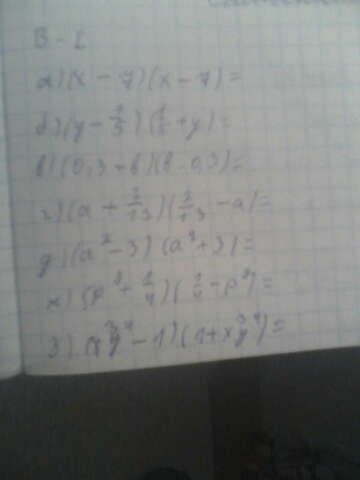 В - 2
а) (x - 7)(x - 7) =
б) (y - 1/5)(1/5 + y) =
в) (0,3 + в)(в - 0,3) =
г) (a + 2/13)(2/13 - a) =
д) (a² - 3)(a² + 3) =
ж) (p⁸ + 1/4)(1/4 - p⁸) =
з) (x³y⁴ - 1)(1 + x³y⁴) =